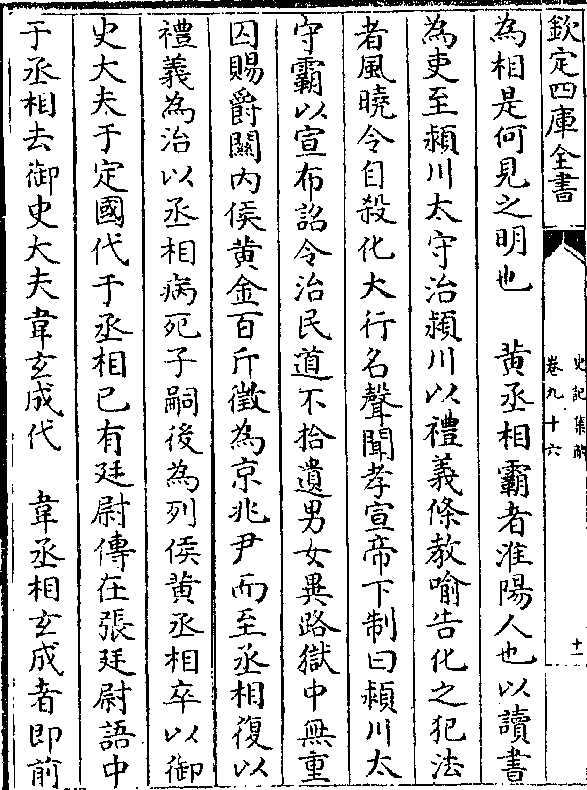 欽定四庫全書
史記集解
卷九十六
十一
為相是何見之明也　黄丞相霸者淮陽人也以讀書
為吏至潁川太守治潁川以禮義條教喻告化之犯法
者風曉令自殺化大行名聲聞孝宣帝下制曰潁川太
守霸以宣布詔令治民道不拾遺男女異路獄中無重
囚賜爵關内侯黄金百斤徵為京兆尹而至丞相復以
禮義為治以丞相病死子嗣後為列侯黄丞相卒以御
史大夫于定國代于丞相已有廷尉傳在張廷尉語中
于丞相去御史大夫韋玄成代　韋丞相玄成者即前